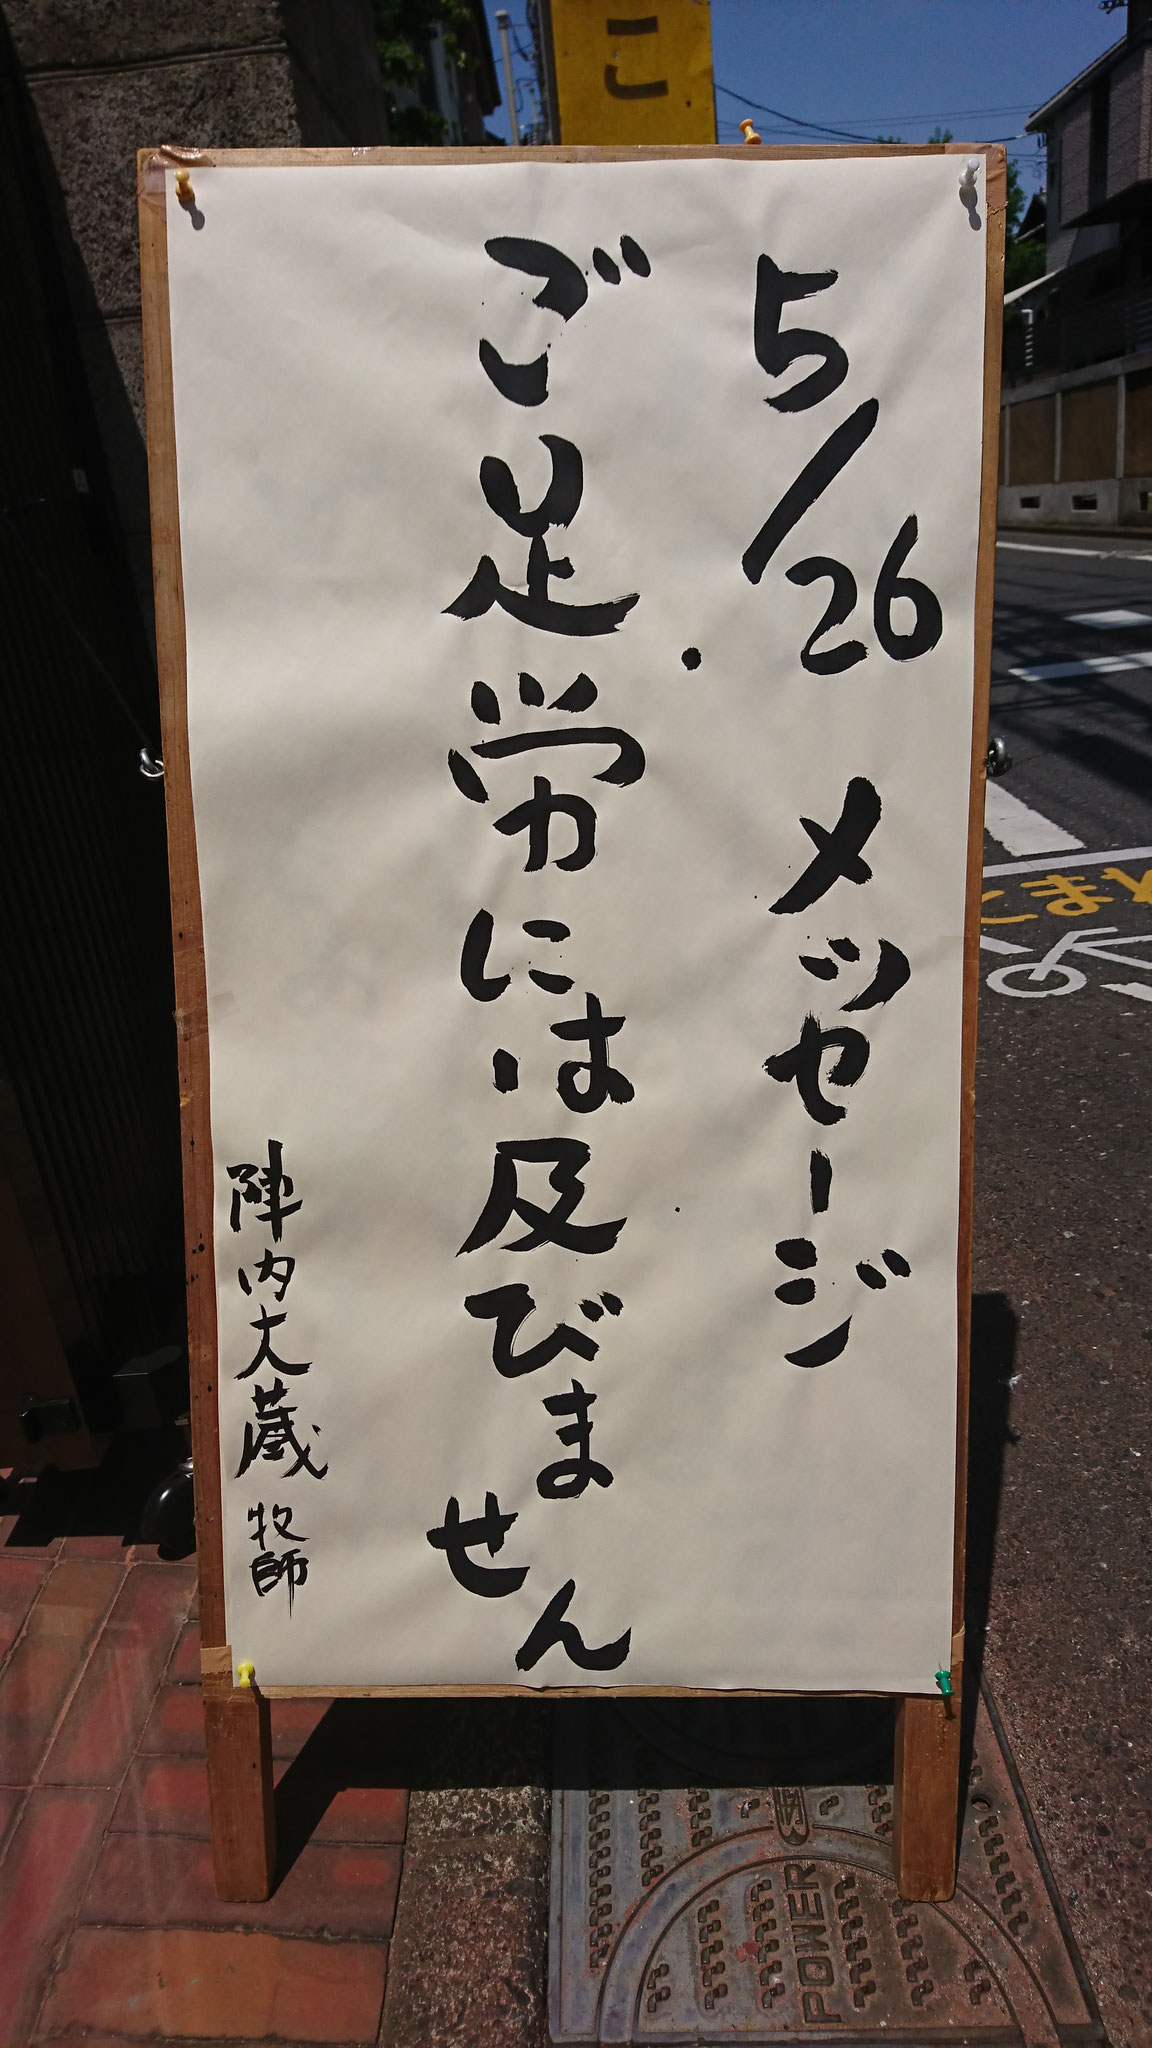 5/26 メッセージ
ご足労には及びません
陣内大蔵 牧師
こ
とまれ
POWER